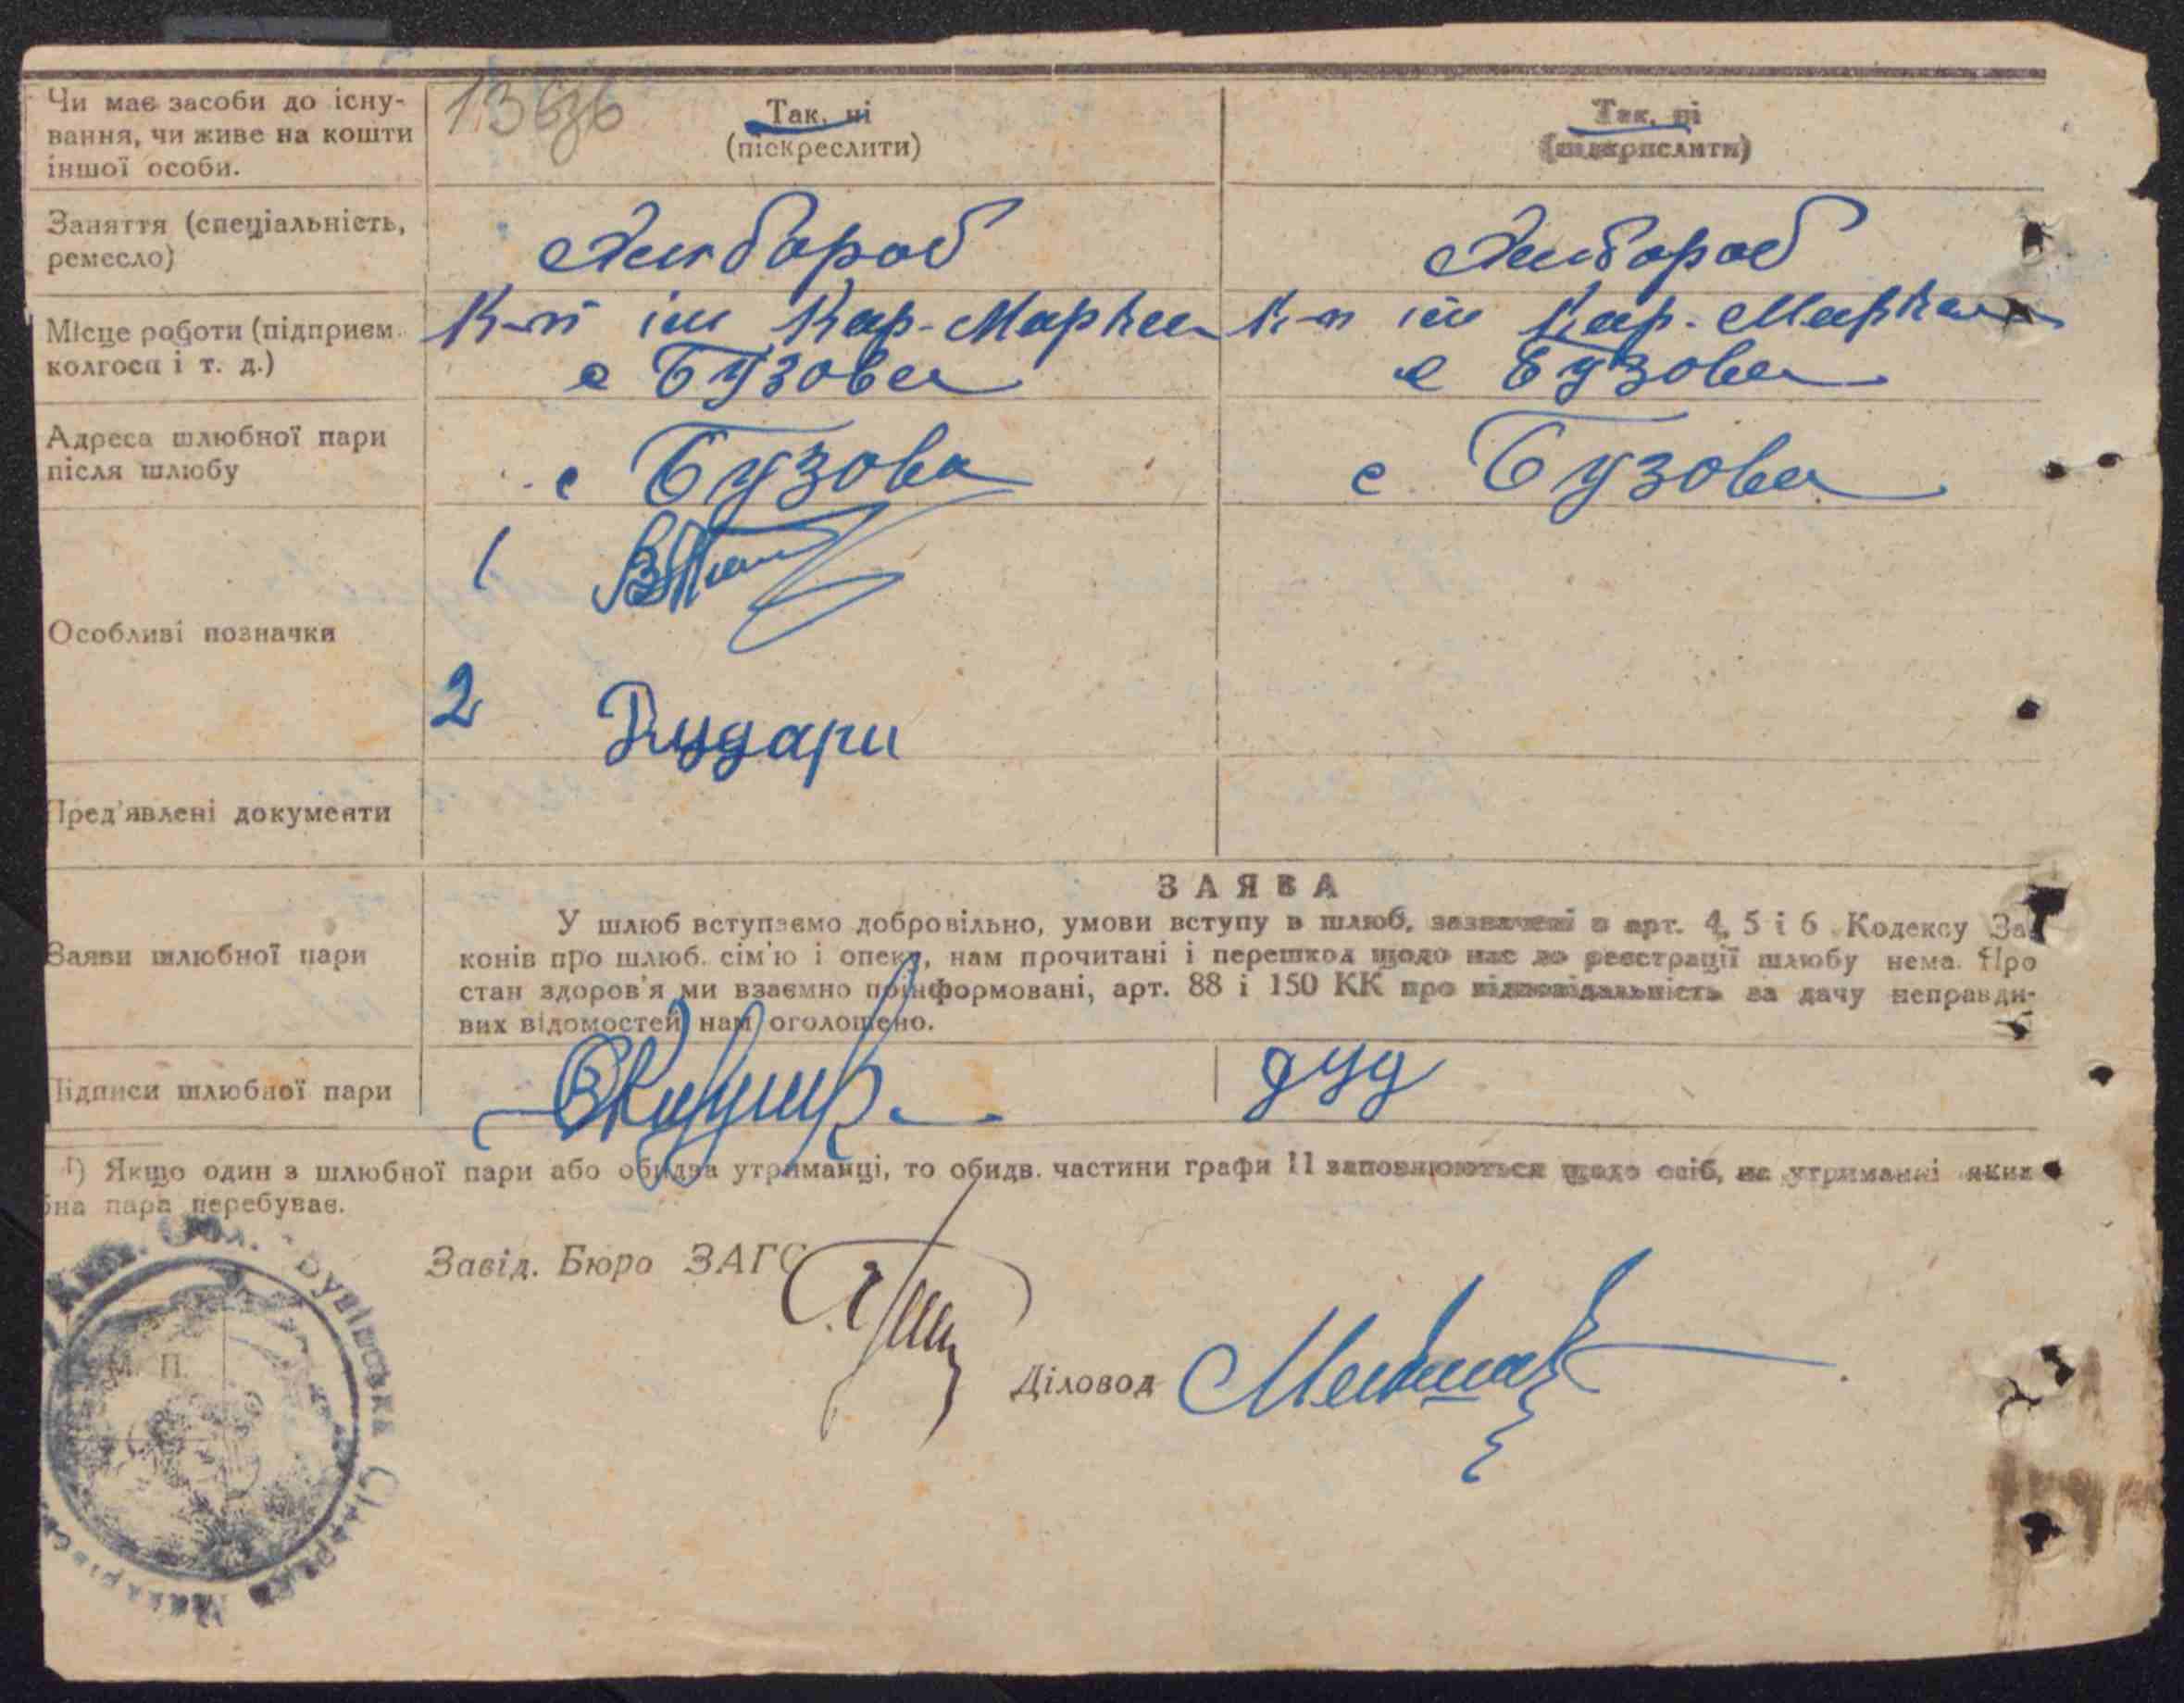 Чи має засоби до існу-
вання, чи живе на кошти
іншої особи.
Так, ні
(піскреслити)
Так, ні
(підкрислити)
Заняття (спеціальність,
ремесло)
Хлибороб
Хлибороб
Місце роботи (підприєм.
колгосп і т. д.)
К-п ім Кар-Маркса
с Бузова
К-п ім Кар-Маркса
с Бузова
Адреса шлюбної пари
після шлюбу
с Бузова
с. Бузова
Особливі позначки
1
2
Пред'явлені документи
Заяви шлюбної пари
ЗАЯВА
У шлюб вступаємо добровільно, умови вступу в шлюб, зазначені в арт. 4, 5 і 6 Кодексу За-
конів про шлюб. сім'ю і опеку, нам прочитані і перешкод щодо нас до реєстрації шлюбу нема. Про
стан здоров'я ми взаємно поінформовані, арт. 88 і 150 КК про відповідальність за дачу неправди-
вих відомостей нам оголошено.
Підписи шлюбної пари
дуд
1) Якщо один з шлюбної пари або обидва утриманці, то обидв. частини графи 11 заповнюються щодо осіб, на утриманні яких
бна пара перебуває.
Завід. Бюро ЗАГС
Діловод
М. П.